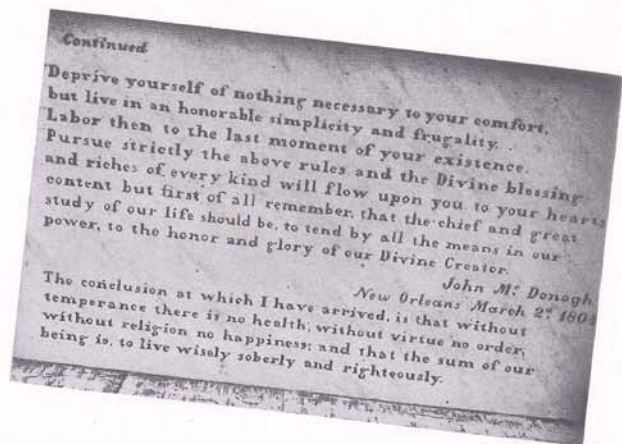 Continued
Deprive yourself of nothing necessary to your comfort,
but live in an honorable simplicity and frugality.
Labor then to the last moment of your existence.
Pursue strictly the above rules and the Divine blessing
and riches of every kind will flow upon you to your hearts
content but first of all remember, that the chief and great
study of our life should be, to tend by all the means in our
power, to the honor and glory of our Divine Creator.
John Mc. Donogh
New Orleans March 2d. 1804
The conclusion at which I have arrived, is that without
temperance there is no health; without virtue no order;
without religion no happiness; and that the sum of our
being is, to live wisely soberly and righteously.